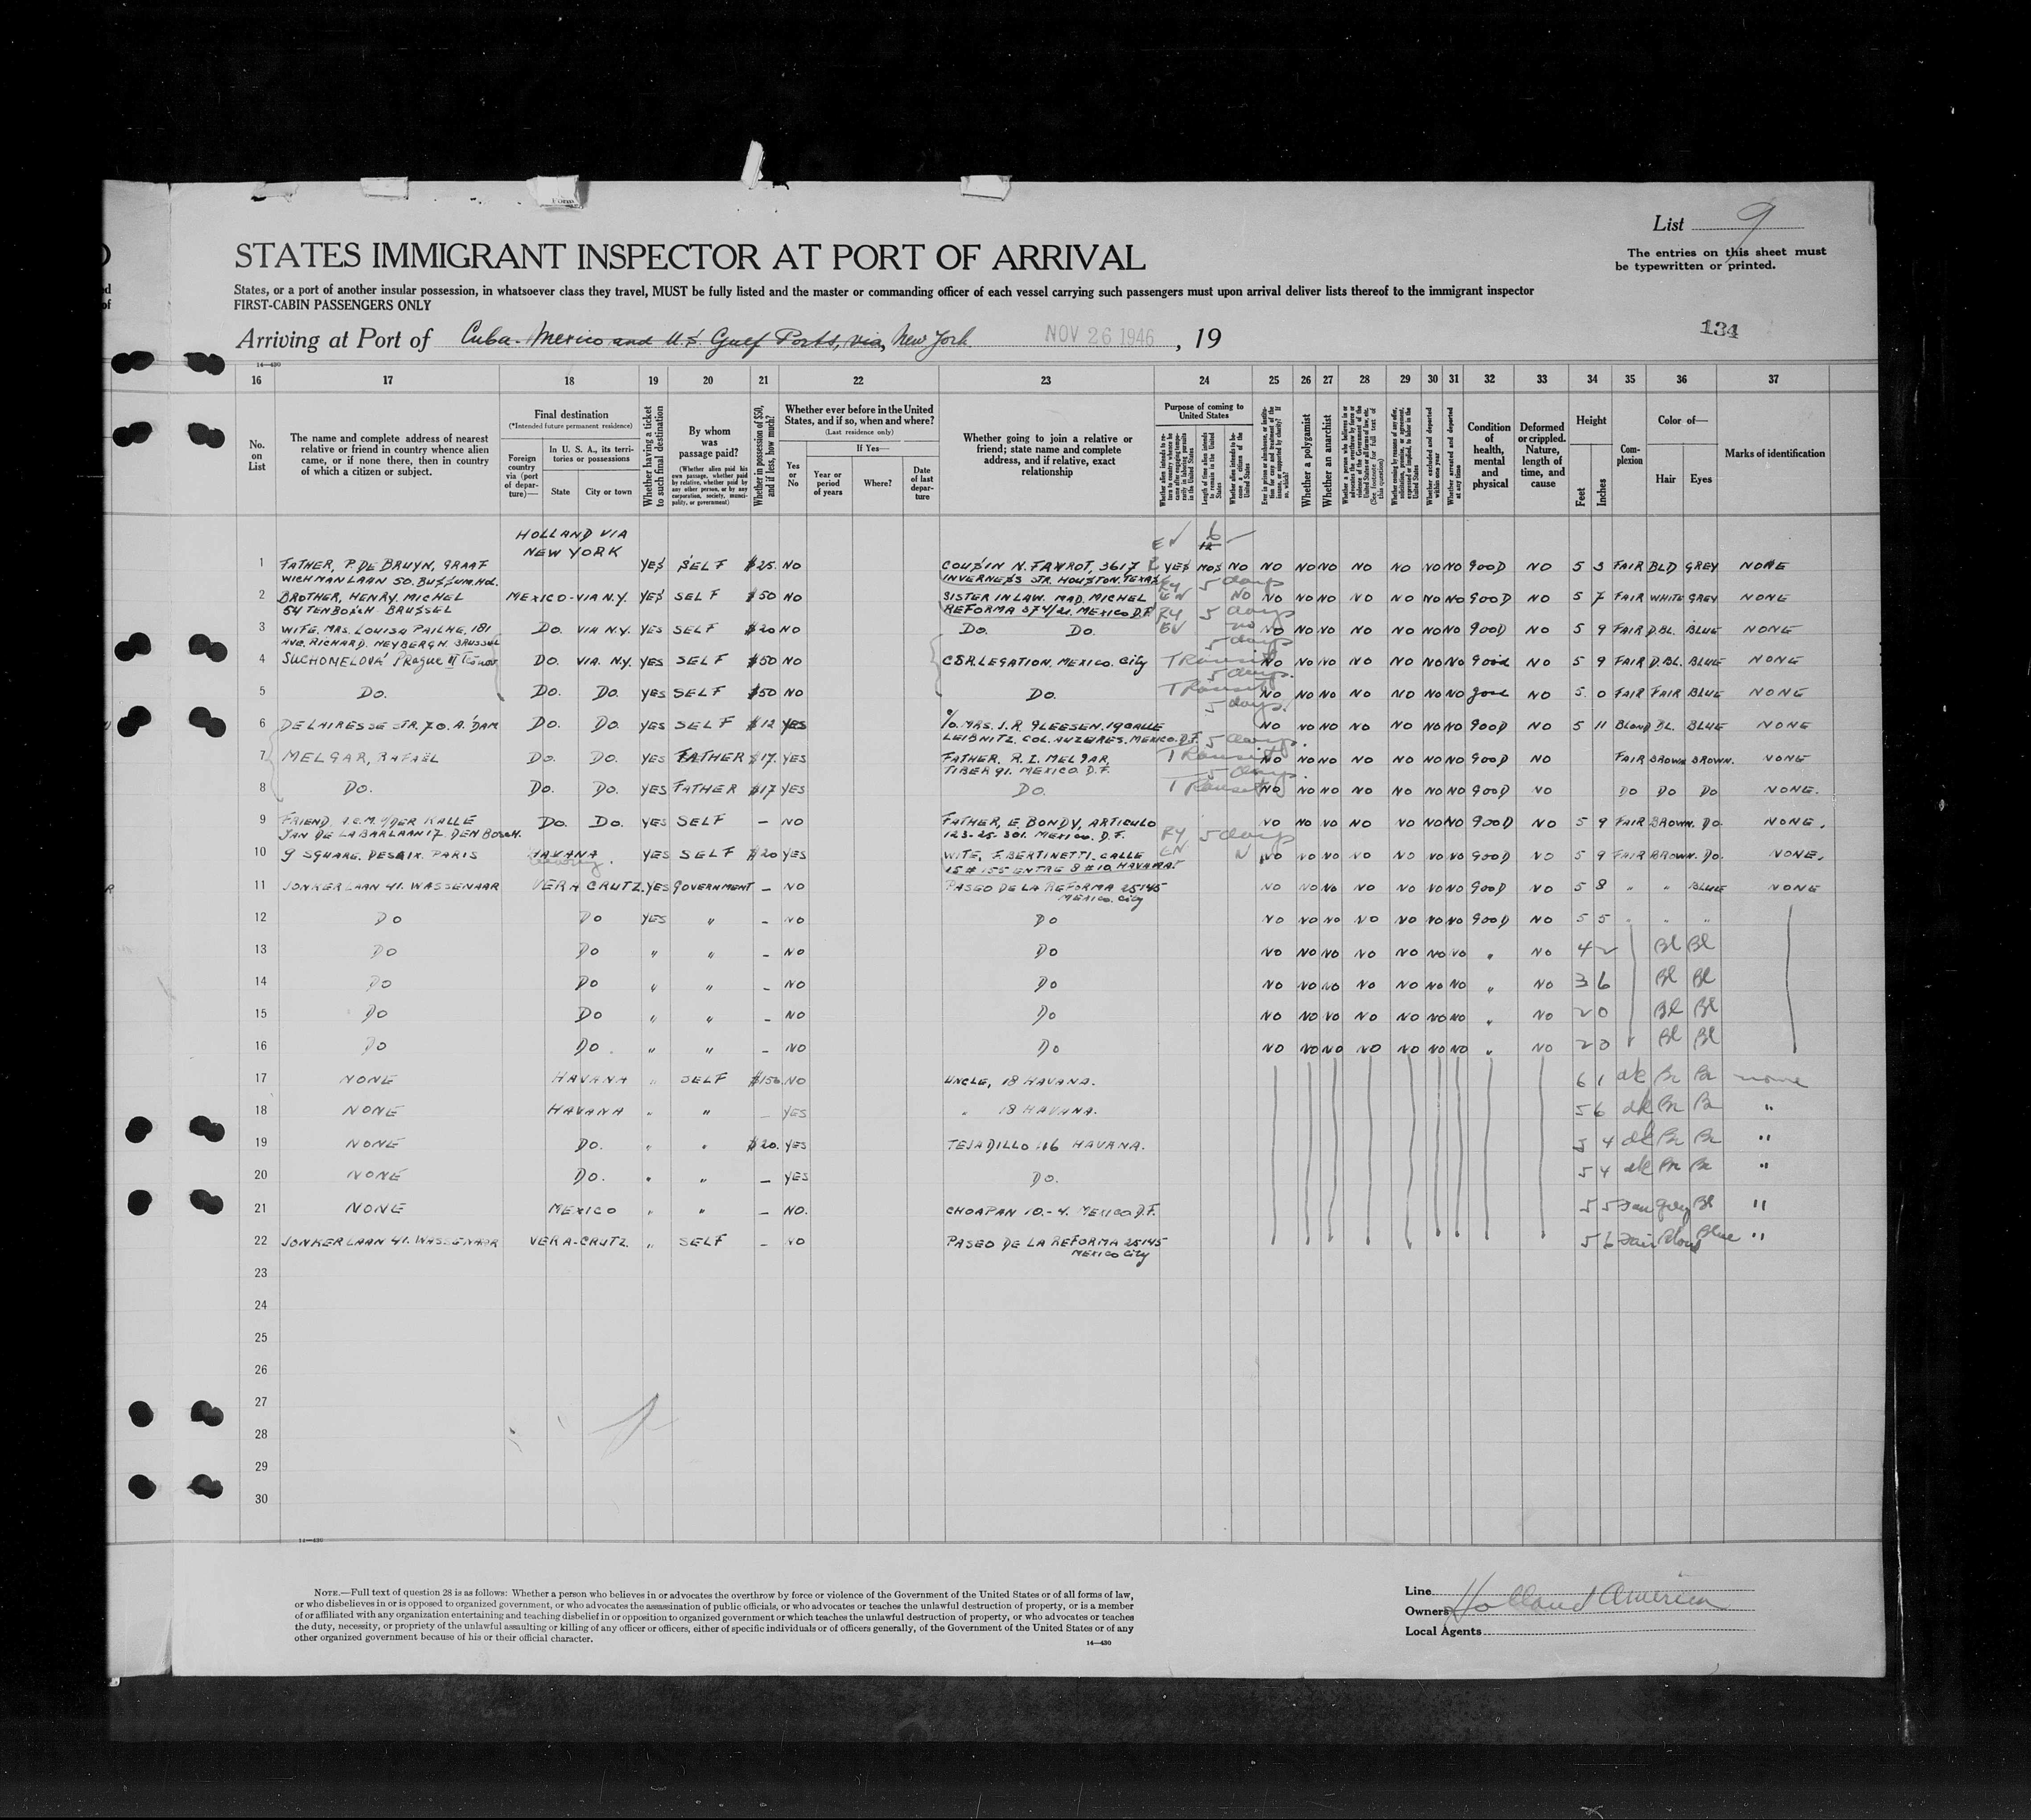 List 9
The entries on this sheet must
be typewritten or printed.
STATES IMMIGRANT INSPECTOR AT PORT OF ARRIVAL
States, or a port of another insular possession, in whatsoever class they travel, MUST be fully listed and the master or commanding officer of each vessel carrying such passengers must upon arrival deliver lists thereof to the immigrant inspector
FIRST-CABIN PASSENGERS ONLY
Arriving at Port of Cuba-Mexico and U.S. Gulf Ports, via, New York NOV 26 1946, 19
134
14—430
16 17 18 19 20 21 22 23 24 25 26 27 28 29 30 31 32 33 34 35 36 37
No. on List
The name and complete address of nearest relative or friend in country whence alien came, or if none there, then in country of which a citizen or subject.
Final destination
(*Intended future permanent residence)
Foreign country via (port of departure)—
In U. S. A., its territories or possessions
State
City or town
Whether having a ticket to such final destination
By whom was passage paid?
(Whether alien paid his own passage, whether paid by relative, whether paid by any other person, or by any corporation, society, municipality, or government)
Whether in possession of $50, and if less, how much?
Whether ever before in the United States, and if so, when and where?
(Last residence only)
Yes or No
If Yes—
Year or period of years
Where?
Date of last departure
Whether going to join a relative or friend; state name and complete address, and if relative, exact relationship
Purpose of coming to United States
Length of time alien intends to remain in the United States
Whether a polygamist
Whether an anarchist
(See footnote for full text of this question)
Whether excluded and deported within one year
Whether arrested and deported at any time
Condition of health, mental and physical
Deformed or crippled. Nature, length of time, and cause
Height
Feet
Inches
Complexion
Color of—
Hair
Eyes
Marks of identification
HOLLAND VIA
NEW YORK
1 FATHER, P. DE BRUYN, GRAAF WICHMAN LAAN 50. BUSSUM. Hol. YES SELF $25. NO COUSIN N. FAWROT, 3617 INVERNESS STR. HOUSTON. TEXAS YES MOS NO NO NO NO NO NO NO NO GOOD NO 5 3 FAIR BLD GREY NONE
2 BROTHER, HENRY. MICHEL 54 TENBOSCH BRUSSEL MEXICO-VIA N.Y. YES SELF $50 NO SISTER IN LAW. MAD. MICHEL REFORMA 374/21. MEXICO D.F. 5 days NO NO NO NO NO NO NO NO GOOD NO 5 7 FAIR WHITE GREY NONE
3 WIFE. MRS. LOUISA PAILHE, 181 AVE. RICHARD. NEYBERGH. BRUSSEL DO. VIA N.Y. YES SELF $20 NO DO. DO. 5 days no NO NO NO NO NO NO NO GOOD NO 5 9 FAIR D.BL. BLUE NONE
4 SUCHOMELOVÁ Prague II DO. VIA. N.Y. YES SELF $50 NO CSR. LEGATION. MEXICO. City Transit 5 days NO NO NO NO NO NO NO Good NO 5 9 FAIR D.BL. BLUE NONE
5 DO. DO. DO. YES SELF $50 NO DO. Transit 5 days. NO NO NO NO NO NO NO good NO 5 0 FAIR FAIR BLUE NONE
6 DE LAIRESSE STR. 70. A'DAM DO. DO. YES SELF $12 YES c/o. MRS. J.R. GLEESEN. 19 CALLE LEIBNITZ. COL. AUZERES. MEXICO. D.F. 5 days. NO NO NO NO NO NO NO GOOD NO 5 11 Blond BL. BLUE NONE
7 MELGAR, RAFAËL DO. DO. YES FATHER $17. YES FATHER. R. I. MELGAR, TIBER 91. MEXICO D.F. Transit 5 days. NO NO NO NO NO NO NO GOOD NO FAIR BROWN BROWN. NONE
8 DO. DO. DO. YES FATHER $17 YES DO. Transit 5 days. NO NO NO NO NO NO NO GOOD NO DO DO DO NONE.
9 FRIEND, J.E.M. v/DER KALLE JAN DE LA BARLAAN 17. DEN BOSCH. DO. DO. YES SELF – NO FATHER, E. BONDY, ARTICULO 123-25-301. MEXICO. D.F. NO NO NO NO NO NO NO GOOD NO 5 9 FAIR BROWN. DO. NONE.
10 9 SQUARE. DESAIX. PARIS HAVANA YES SELF $20 YES WIFE, F. BERTINETTI. CALLE 15 # 155 ENTRE 8 # 10. HAVANA. 5 days N NO NO NO NO NO NO NO GOOD NO 5 9 FAIR BROWN. DO. NONE.
11 JONKERLAAN 41. WASSENAAR VERA CRUTZ. YES GOVERNMENT – NO PASEO DE LA REFORMA 25145 MEXICO. City NO NO NO NO NO NO NO GOOD NO 5 8 " " BLUE NONE
12 DO DO YES " – NO DO NO NO NO NO NO NO NO GOOD NO 5 5 " " "
13 DO DO " " – NO DO NO NO NO NO NO NO NO " NO 4 2 Bl Bl
14 DO DO " " – NO DO NO NO NO NO NO NO NO " NO 3 6 Bl Bl
15 DO DO " " – NO DO NO NO NO NO NO NO NO " NO 2 0 Bl Bl
16 DO DO. " " – NO DO NO NO NO NO NO NO NO " NO 2 0 Bl Bl
17 NONE HAVANA " SELF $150. NO UNCLE, 18 HAVANA. 6 1 dk Br Br none
18 NONE HAVANA " " – YES " 18 HAVANA. 5 6 dk Br Br "
19 NONE DO. " " $20. YES TEJADILLO 116 HAVANA. 5 4 dk Br Br "
20 NONE DO. " " – YES DO. 5 4 dk Br Br "
21 NONE MEXICO " " – NO. CHOAPAN 10.-4. MEXICO D.F. 5 5 Fair Grey Bl "
22 JONKERLAAN 41. WASSENAAR VERA-CRUTZ. " SELF – NO PASEO DE LA REFORMA 25145 MEXICO City 5 6 Fair Blond Blue "
23
24
25
26
27
28
29
30
14—430
NOTE.—Full text of question 28 is as follows: Whether a person who believes in or advocates the overthrow by force or violence of the Government of the United States or of all forms of law,
or who disbelieves in or is opposed to organized government, or who advocates the assassination of public officials, or who advocates or teaches the unlawful destruction of property, or is a member
of or affiliated with any organization entertaining and teaching disbelief in or opposition to organized government or which teaches the unlawful destruction of property, or who advocates or teaches
the duty, necessity, or propriety of the unlawful assaulting or killing of any officer or officers, either of specific individuals or of officers generally, of the Government of the United States or of any
other organized government because of his or their official character.
14—430
Line
Owners Holland America
Local Agents